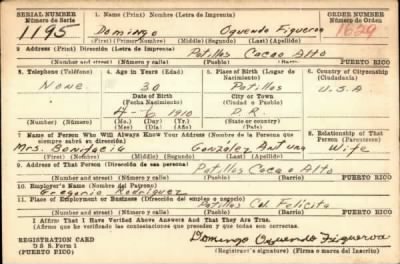 SERIAL NUMBER
Número de Serie
1. Name (Print) Nombre (Letra de Imprenta)
ORDER NUMBER
Número de Orden
1195
Domingo Oquendo Figueroa
1629
(First) (Primer Nombre) (Middle) (Segundo) (Last) (Apellido)
2 Address (Print) Dirección (Letra de Imprenta)
Patillos Cacao Alto
(Number) (Número) (Pueblo) (Barrio) PUERTO RICO
3. Telephone (Teléfono)
4. Age in Years (Edad)
5. Place of Birth (Lugar de Nacimiento)
6. Country of Citizenship (Ciudadanía)
None 30 Patillos U.S.A
Date of Birth
(Fecha Nacimiento)
City or Town
(Ciudad o Pueblo)
6 1910 P.R
(Number) (Número) (Mo.) (Day) (Yr.) (State or country)
(Mes) (Día) (Año) (Estado o país)
7 Name of Person Who Will Always Know Your Address (Nombre de la Persona que siempre sabrá su dirección)
8. Relationship of That Person (Parentesco)
Mrs. Bonifacia González Wife
(First) (Primer Nombre) (Middle) Segundo (Last) (Apellido)
9 Address of That Person (Dirección de esa persona)
Patillos Cacao Alto
(Number) (Número) (Pueblo) (Barrio) PUERTO RICO
10 Employer's Name (Nombre del Patrono)
Gregorio Rodriguez
11 Place of Employment or Business (Dirección del empleo o negocio)
Patillos Col Felicita
(Number) (Número) (Pueblo) (Barrio) PUERTO RICO
I Affirm That I Have Verified Above Answers And That They Are True.
(Afirmo que he verificado las contestaciones que preceden y que todas son correctas.
REGISTRATION CARD
D S S. Form 1
(PUERTO RICO)
Domingo Oquendo Figueroa
(Registrant's signature) (Firma o marca del Inscrito)